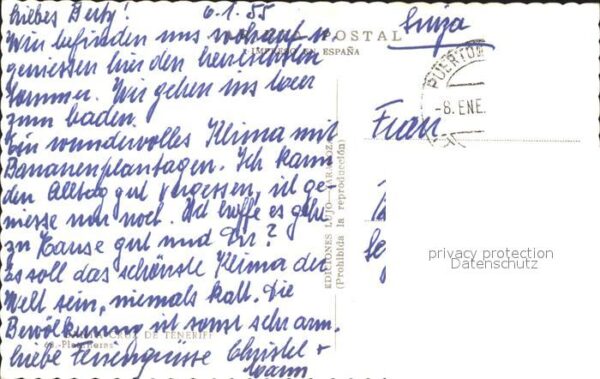 Liebes Betty! 6.1.55
Wir befinden uns wohlauf u.
geniessen hier den herrlichsten
Sommer. Wir gehen ins Meer
zum baden.
Ein wundervolles Klima mit
Bananenplantagen. Ich kann
den Alltag gut vergessen, ich ge-
niesse nur noch. Ich hoffe es gehe
zu Hause gut und Dir?
Es soll das schönste Klima der
Welt sein, niemals kalt. Die
Bevölkerung ist sonst sehr arm.
Liebe Feriengrüsse Christel +
POSTAL
IMPRESO EN ESPAÑA
CRUZ DE TENERIFE
EDICIONES LUJO - ZARAGOZA
(Prohibida la reproducción)
PUERTO
-8. ENE.
Frau
privacy protection
Datenschutz